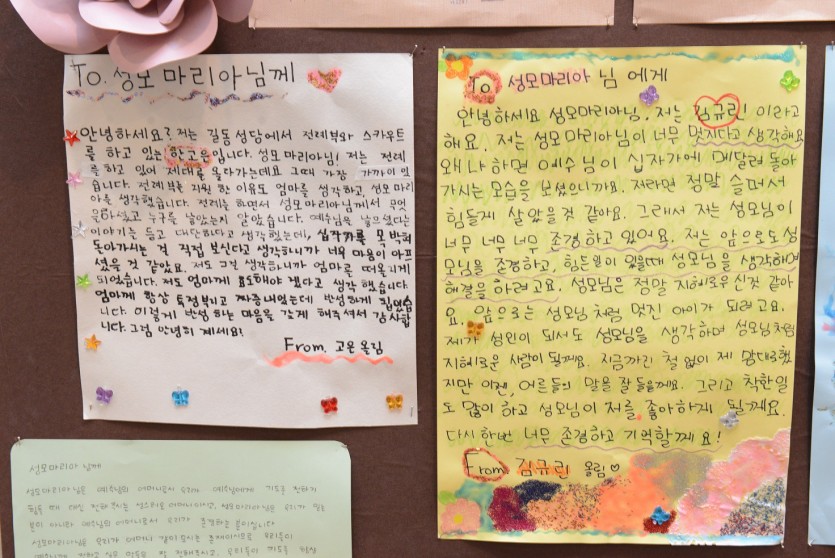 To. 성모 마리아님께
안녕하세요? 저는 길동 성당에서 전례부와 스카우트
를 하고 있는 한고은입니다. 성모 마리아님! 저는 전례
를 하고 있어 제대를 올라가는데요 그때 가장 가까이 있
습니다. 전례부를 지원 한 이유도 엄마를 생각하고, 성모 마리
아를 생각했습니다. 전례를 하면서 성모 마리아님께서 무엇
을 하셨고 누구를 낳았는지 알았습니다. 예수님을 낳으셨다는
이야기는 듣고 대단하다고 생각했는데, 십자가를 못 박혀
돌아가시는 걸 직접 보신다고 생각하니까 너무 마음이 아프
셨을 것 같았요. 저도 그걸 생각하니까 엄마곧 떠올리게
되었습니다. 저도 엄마께 효도해야 겠다고 생각 했습니다.
엄마께 항상 투정부리고 짜증내었는데 반성하게 됬었습
니다. 이렇게 반성 하는 마음을 갖게 해주셔서 감사합
니다. 그럼 안녕히 계세요!
From. 고은 올림
To 성모마리아 님 에게
안녕하세요 성모마리아님. 저는 김규린! 이라고
해요. 저는 성모마리아님이 너무 멋지다고 생각해요
왜냐하면 예수님이 십자가에 매달려 돌아
가시는 모습을 보셨으니까요. 저라면 정말 슬퍼서
힘들게 살았을것 같아요. 그래서 저는 성모님이
너무 너무 너무 존경하고 있어요. 저는 앞으로도 성
모님을 존경하고, 힘든일이 있을때 성모님을 생각하며
해결을 하려고요. 성모님은 정말 지혜로우신것 같아
요. 앞으로는 성모님 처럼 멋진 아이가 되려고요.
제가 성인이 되서도 성모님을 생각하며 성모님처럼
지혜로운 사람이 될께요. 지금까진 철 없이 제 맘대로했
지만 이젠, 어른들의 말을 잘 들을께요. 그리고 착한일
도 많이 하고 성모님이 저를 좋아하게 될께요.
다시한번 너무 존경하고 기억할께요!
From 김규린 올림♡
성모마리아 님께
성모마리아님은 예수님의 어머니로서 우리가 예수님에게 기도를 전하기